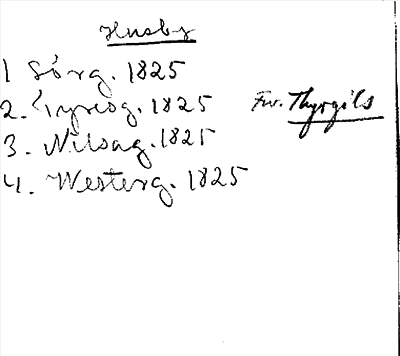 Husby
1 Sörg. 1825
2. Tyresg. 1825 Fw. Thyrgils
3. Nilsag. 1825
4. Westerg. 1825